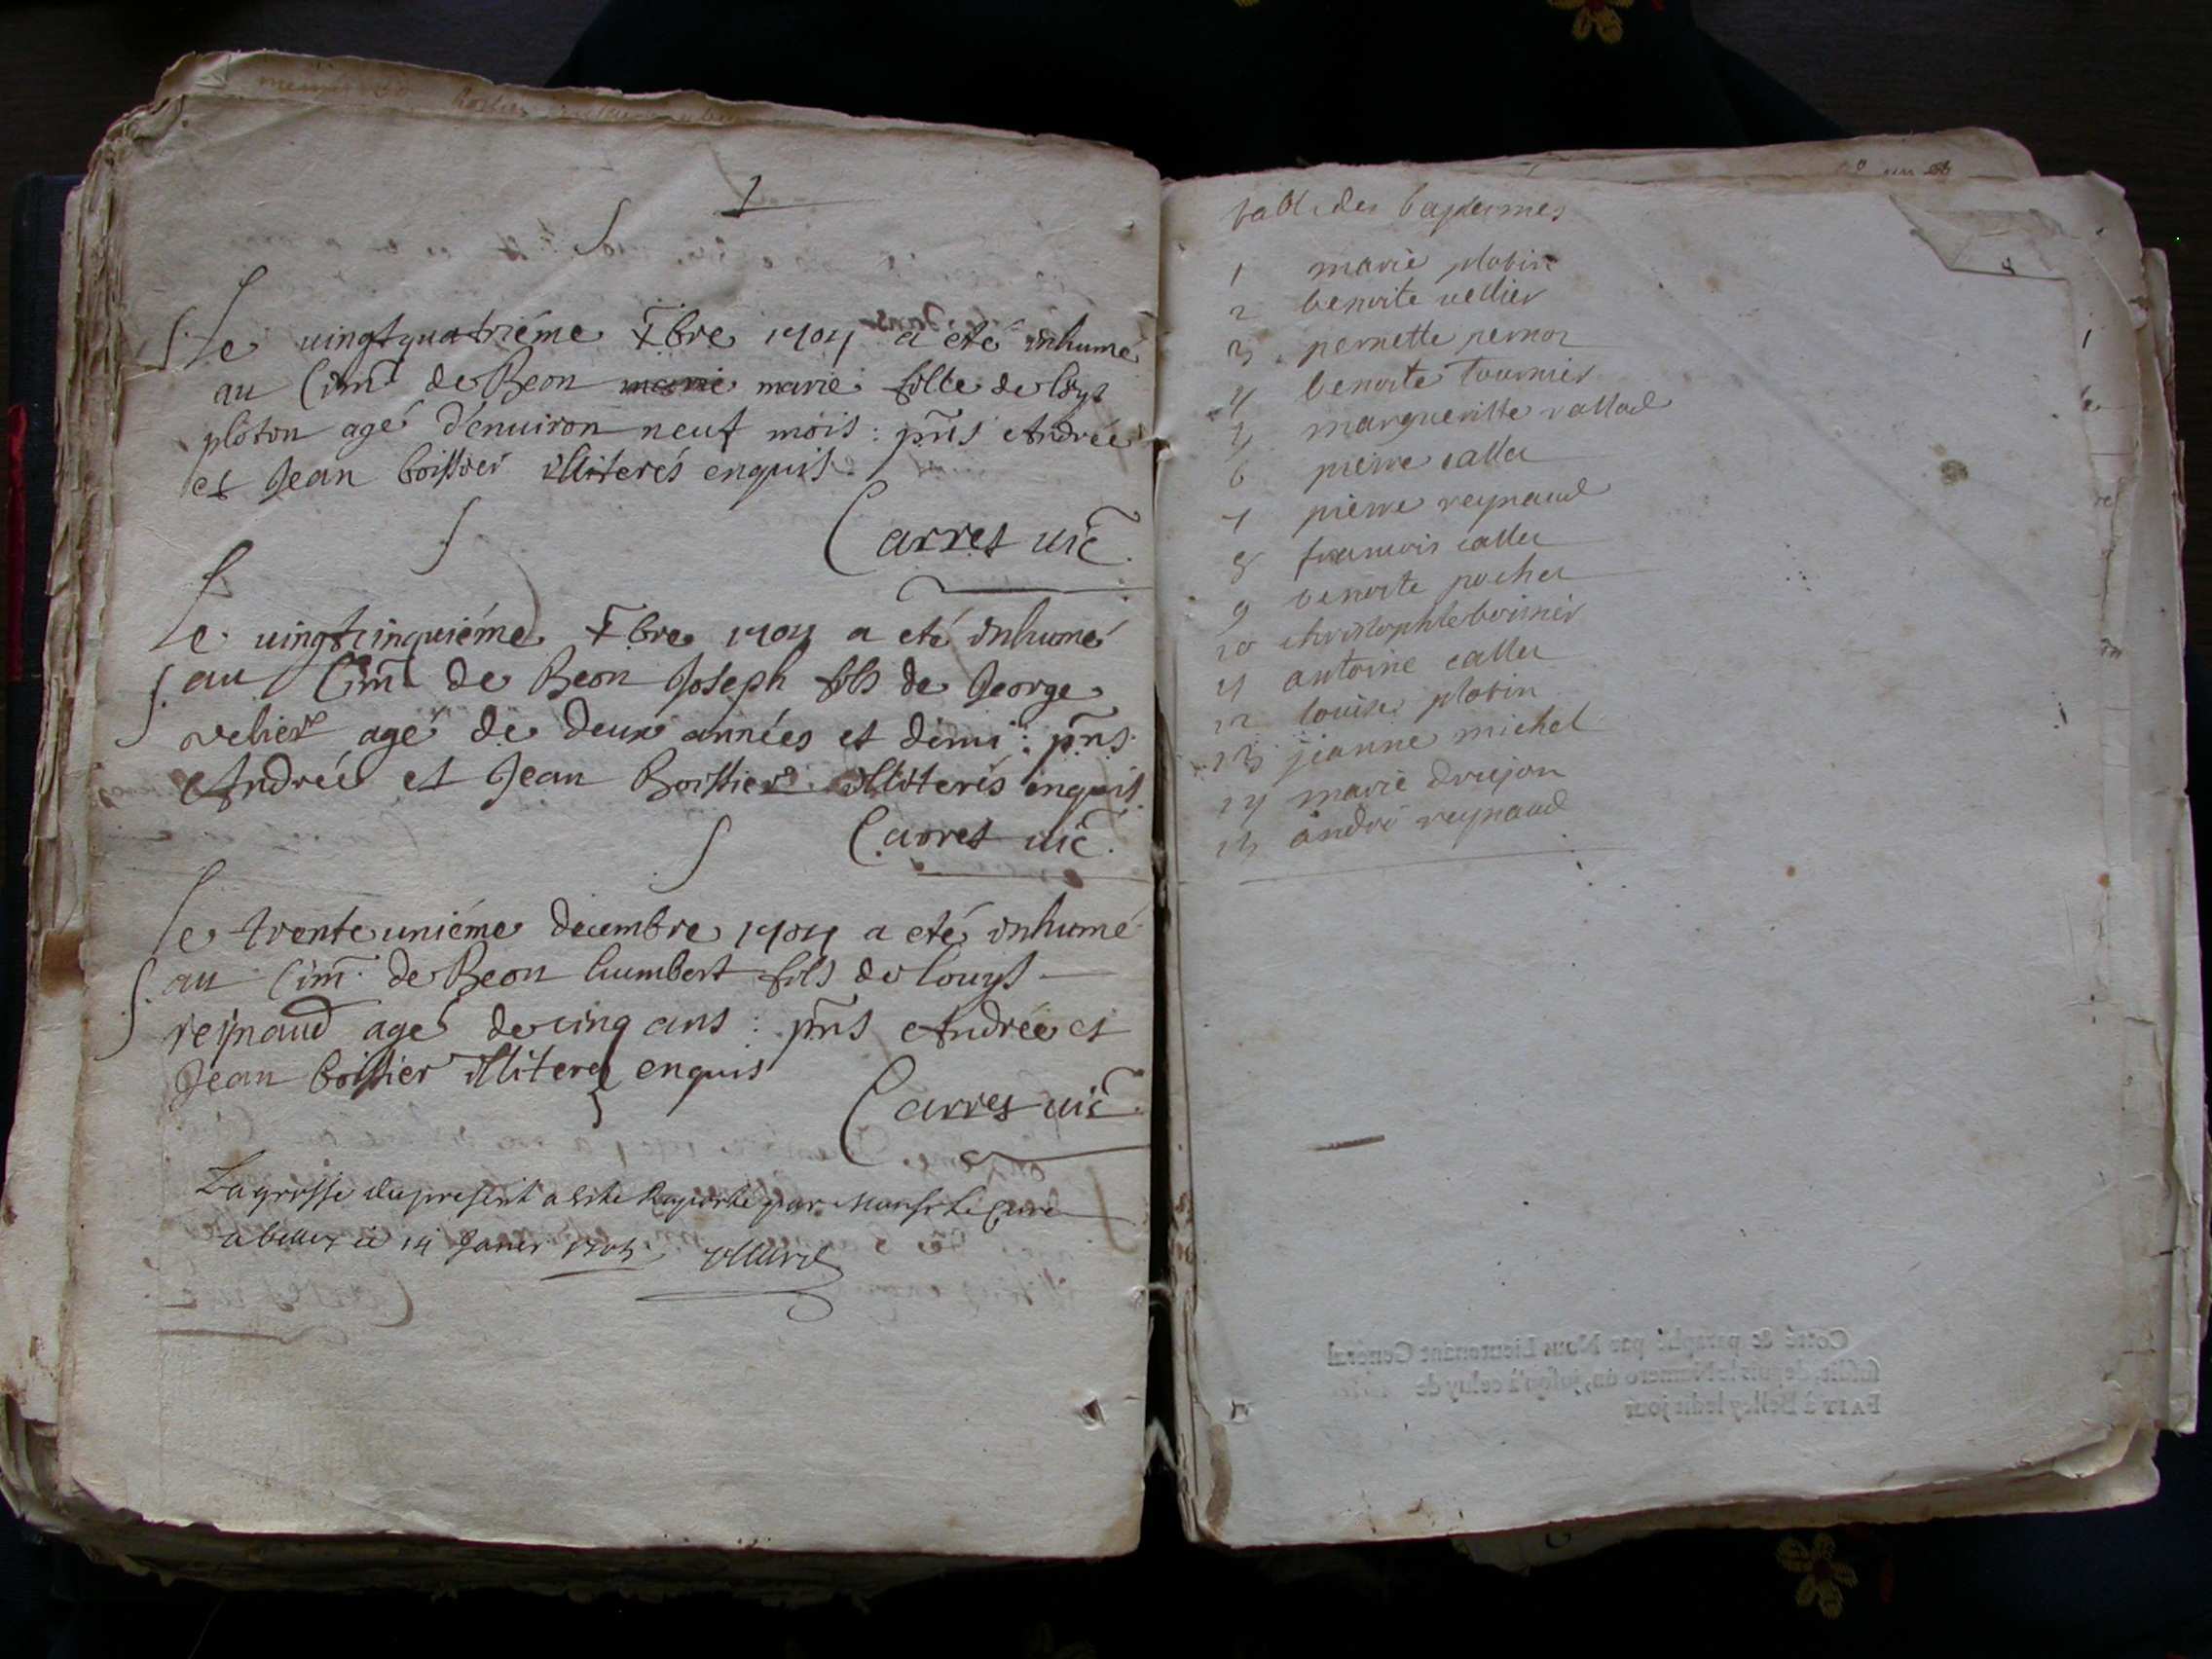 Le uingtquatriéme Xbre 1704 a eté inhumé
au Cim de Beon marie fille de loys
ploton agé d'enuiron neuf mois : pns Andrée
et Jean boissier illiterés enquis
Carret uic
Le uingtcinquiéme Xbre 1704 a eté inhumé
au Cim de Beon Joseph fils de George
velier agé de deux années et dimi : pns
Andrée et Jean Boissier illiterés enquis
Carret uic
Le trente uniéme decembre 1704 a eté inhumé
au Cim de Beon humbert fils de louys
reynaud agé de cinq ans : pns Andrée et
Jean boissier illiterés enquis
Carret uic
La grosse du present a esté Raporté par Monsr le Curé
a belley ce 14 Janvr 1705
table des baptesmes
1 marie plotin
2 benoite uellier
3 pernette pernoz
4 benoite tournier
5 margueritte vallod
6 pierre caller
7 pierre reynaud
8 francois caller
9 benoite pocher
10 christophle boissier
11 antoine caller
12 louise plotin
13 jeanne michel
14 marie drujon
15 andré reynaud
Cotté & paraphé par Nous Lieutenant General
susdit, depuis le Numero un, jusqu'à celuy de
FAIT à Belley ledit jour